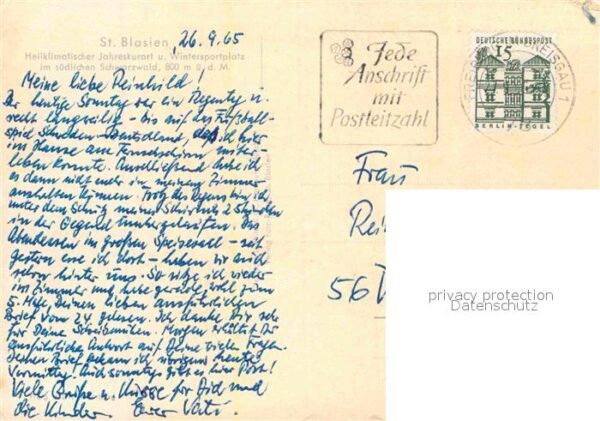 St. Blasien, 26.9.65
Heilklimatischer Jahreskurort u. Wintersportplatz
im südlichen Schwarzwald, 800 m ü. d. M.
Meine liebe Reinhild!
Der heutige Sonntag war ein Regentag u.
recht langweilig - bis auf das Fußball-
spiel Schweden-Deutschland, das ich hier
im Hause am Fernsehschirm miter-
leben konnte. Anschließend habe ich
es dann nicht mehr in meinem Zimmer
aushalten können. Trotz des Regens bin ich
unter dem Schutz meines Schirms 2 Stunden
in der Gegend herumgelaufen. Das
Abendessen im großen Speisesaal - seit
gestern esse ich dort - haben wir auch
schon hinter uns. So sitze ich wieder
im Zimmer und habe gerade wohl zum
5. Male Deinen lieben ausführlichen
Brief vom 24. gelesen. Ich danke Dir sehr
für Deine Schreibmühen. Morgen erhältst Du
ausführliche Antwort auf Deine vielen Fragen.
Deinen Brief bekam ich übrigens heute
Vormittag. Auch sonntags gibt es hier Post!
Viele Grüße u. Küsse für Dich und
die Kinder. Euer Vati.
Jede
Anschrift
mit
Postleitzahl
DEUTSCHE BUNDESPOST
15
BERLIN-TEGEL
FREIBURG BREISGAU 1
Frau
Rei
56
privacy protection
Datenschutz